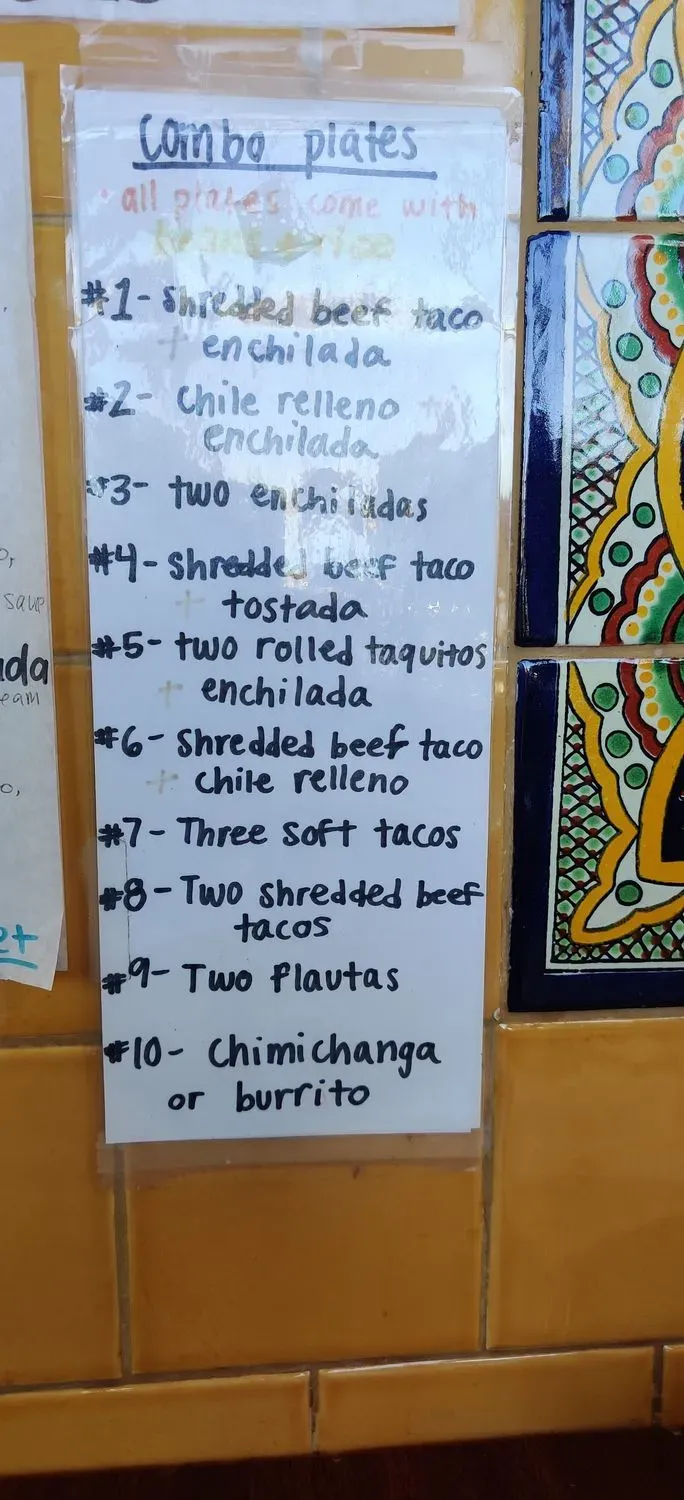 Combo plates
• all plates come with
beans + rice
#1- shredded beef taco
+ enchilada
#2- Chile relleno
enchilada
#3- two enchiladas
#4- shredded beef taco
+ tostada
#5- two rolled taquitos
+ enchilada
#6- shredded beef taco
+ chile relleno
#7- Three soft tacos
#8- Two shredded beef
tacos
#9- Two flautas
#10- Chimichanga
or burrito
soup